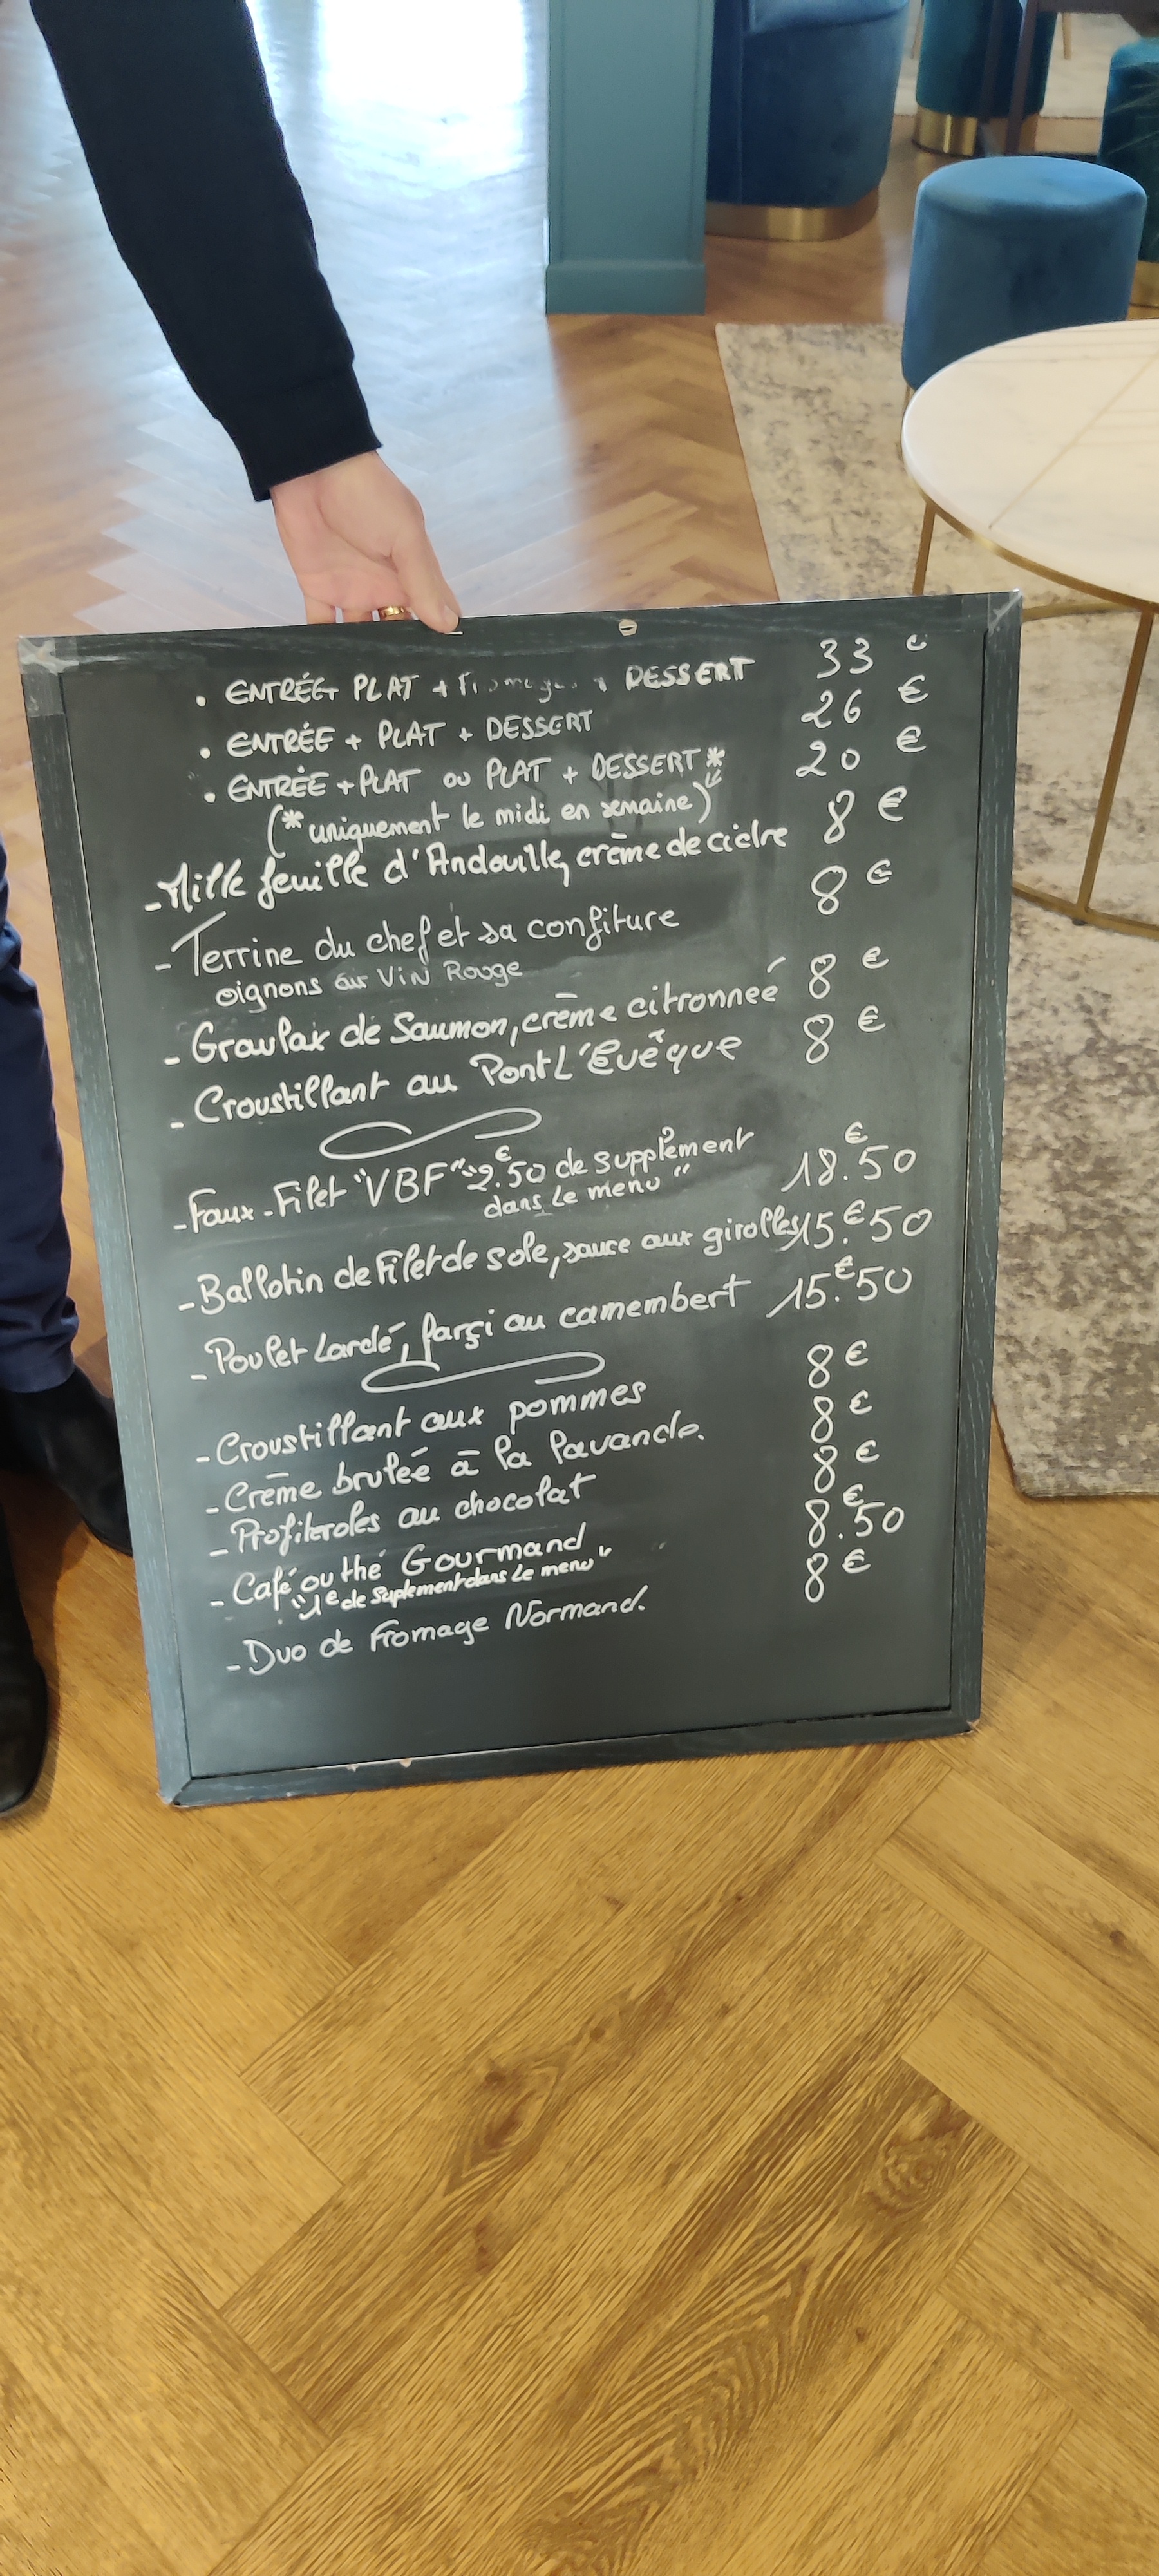 • ENTRÉE+ PLAT + Fromage + DESSERT 33 €
• ENTRÉE + PLAT + DESSERT 26 €
• ENTRÉE + PLAT ou PLAT + DESSERT* 20 €
(* uniquement le midi en semaine)
- Mille feuille d'Andouille, crème de cidre 8 €
- Terrine du chef et sa confiture 8 €
oignons au Vin Rouge
- Gravlax de Saumon, crème citronneé 8 €
- Croustillant au Pont L'Evêque 8 €
- Faux-Filet "VBF" "2.€50 de supplément 18.€50
dans le menu"
- Ballotin de Filet de sole, sauce aux girolles 15.€50
- Poulet Lardé, farçi au camembert 15.€50
- Croustillant aux pommes 8 €
- Crème brulée à la lavande. 8 €
- Profiteroles au chocolat 8 €
- Café ou thé Gourmand 8.€50
"1€ de Suplement dans le menu"
- Duo de Fromage Normand. 8 €